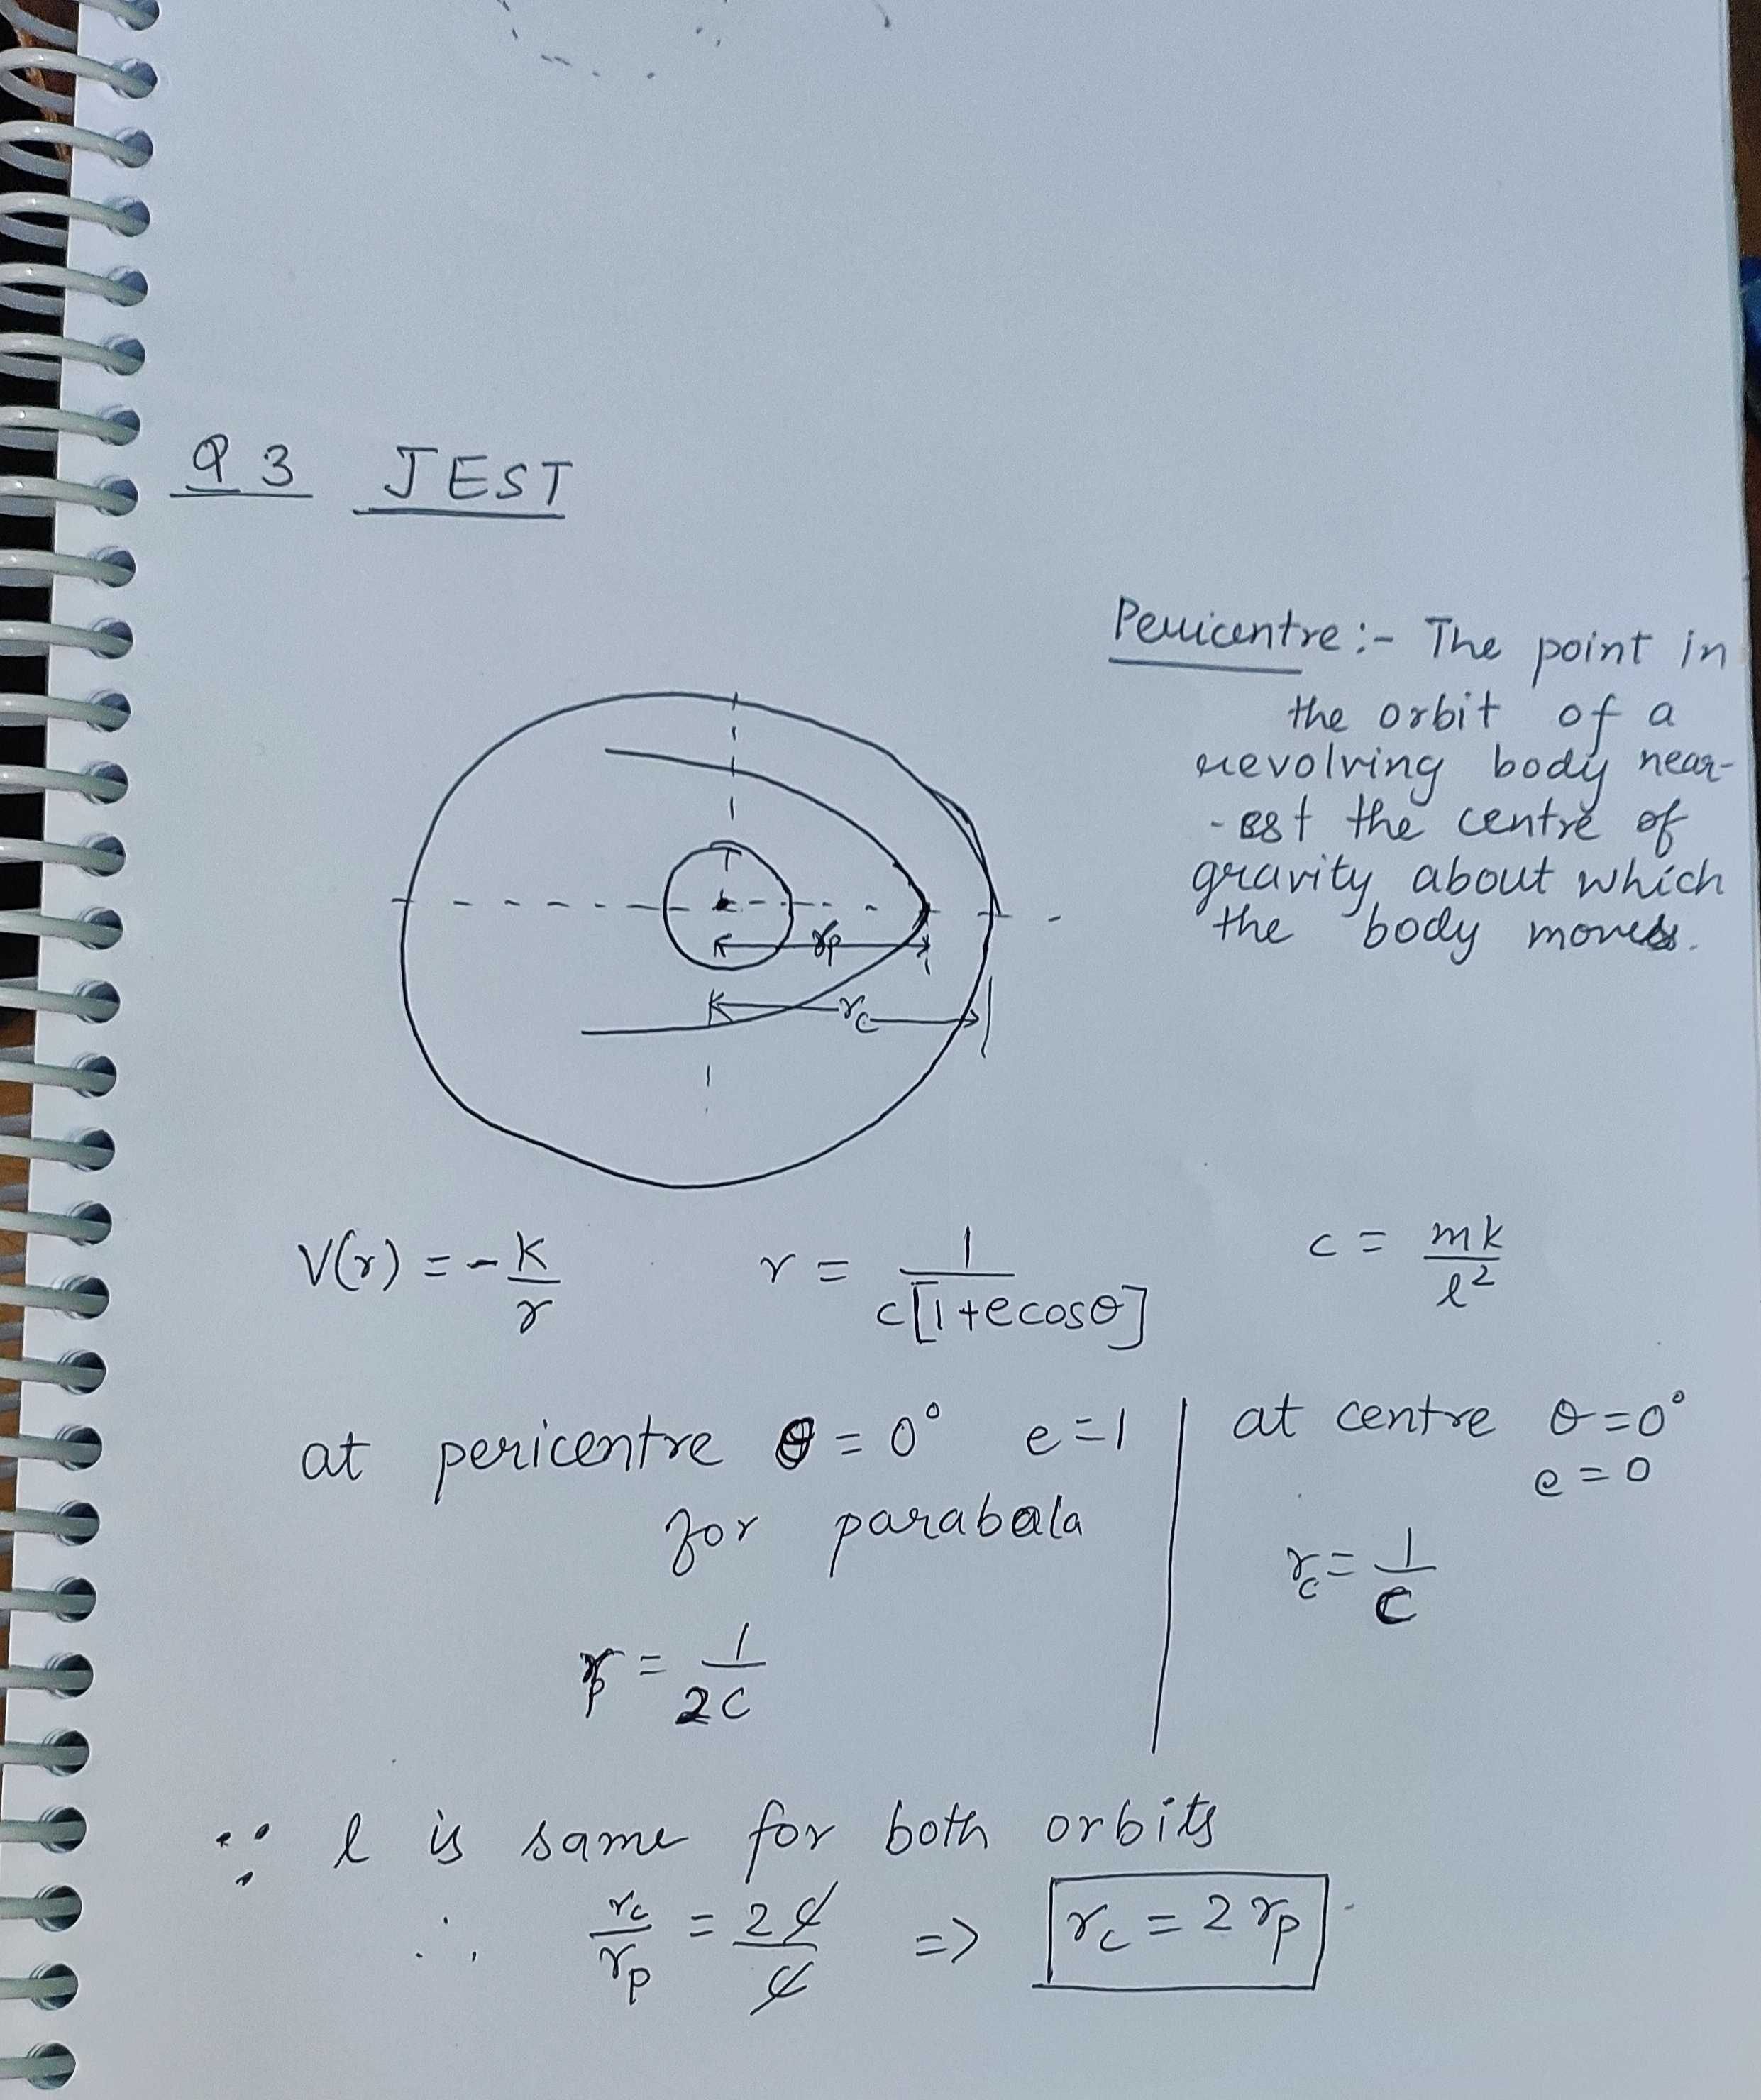 Q3 JEST
Pericentre :- The point in
the orbit of a
revolving body near-
-est the centre of
gravity about which
the body moves.
r_p
r_c
V(r) = -K/r    r = 1/c[1+ecosθ]    c = mk/l²
at pericentre θ = 0° e=1
for parabola
r_p = 1/2C
at centre θ=0°
e=0
r_c = 1/C
∵ l is same for both orbits
∴ r_c/r_p = 2C/C => r_c = 2r_p